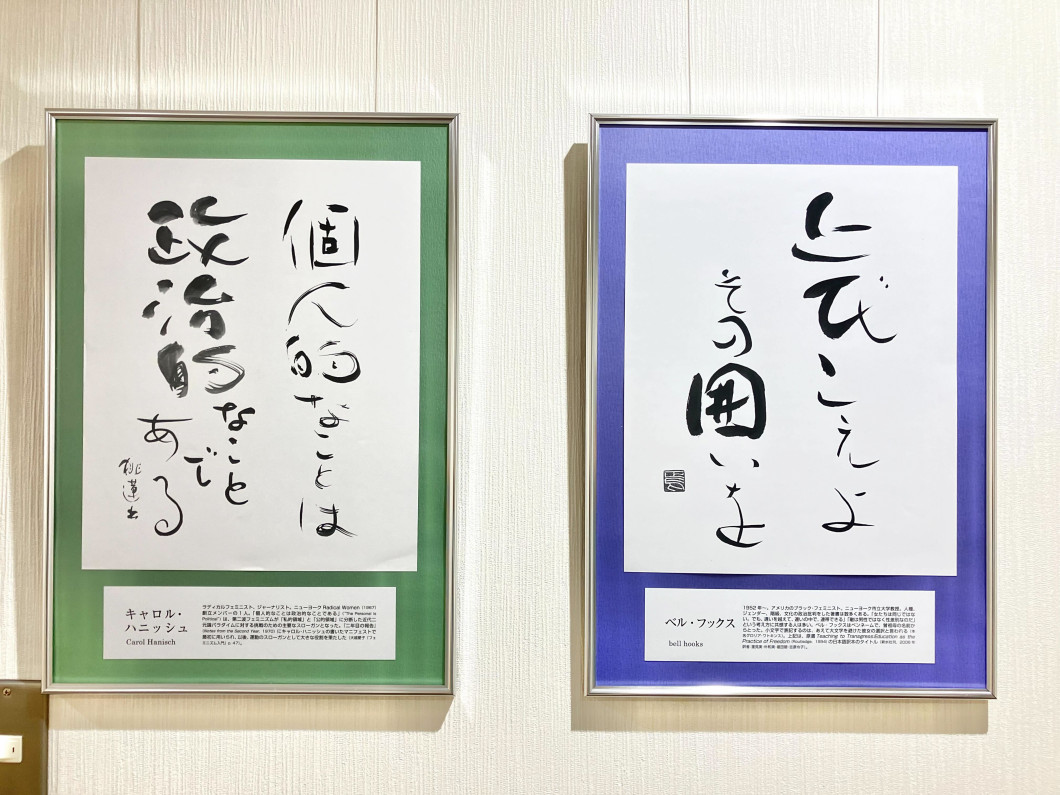 個人的なことは
政治的なことで
ある
キャロル・
ハニッシュ
Carol Hanisch
ラディカルフェミニスト、ジャーナリスト、ニューヨーク Radical Women（1967）
創立メンバーの1人。「個人的なことは政治的なことである」（"The Personal is
Political"）は、第二波フェミニズムが「私的領域」と「公的領域」に分断した近代二
代論パラダイムに対する挑戦のための主要なスローガンとなった。『二年目の報告』
(Notes from the Second Year, 1970) にキャロル・ハニッシュの書いたマニフェストで
最初に用いられ、以後、運動のスローガンとして大きな役割を果たした（大越愛子『フェ
ミニズム入門』p.47）。
とびこえよ
その囲いを
ベル・フックス
bell hooks
1952年〜。アメリカのブラック・フェミニスト、ニューヨーク市立大学教授。人種、
ジェンダー、階級、文化の政治批判をした著書は数多くある。「私たちは同じではな
い。でも、違いを超えて、違いの中で、連帯できる」「敵は男性ではなく性差別なのだ」
という考え方に共感する人は多い。ベル・フックスはペンネームで、曾祖母の名前か
らとった。小文字で表記するのは、あえて大文字を避けた彼女の選択と言われる
上記は、原書 Teaching to Transgress:Education as the
Practice of Freedom (Routledge, 1994) の日本語訳本のタイトル